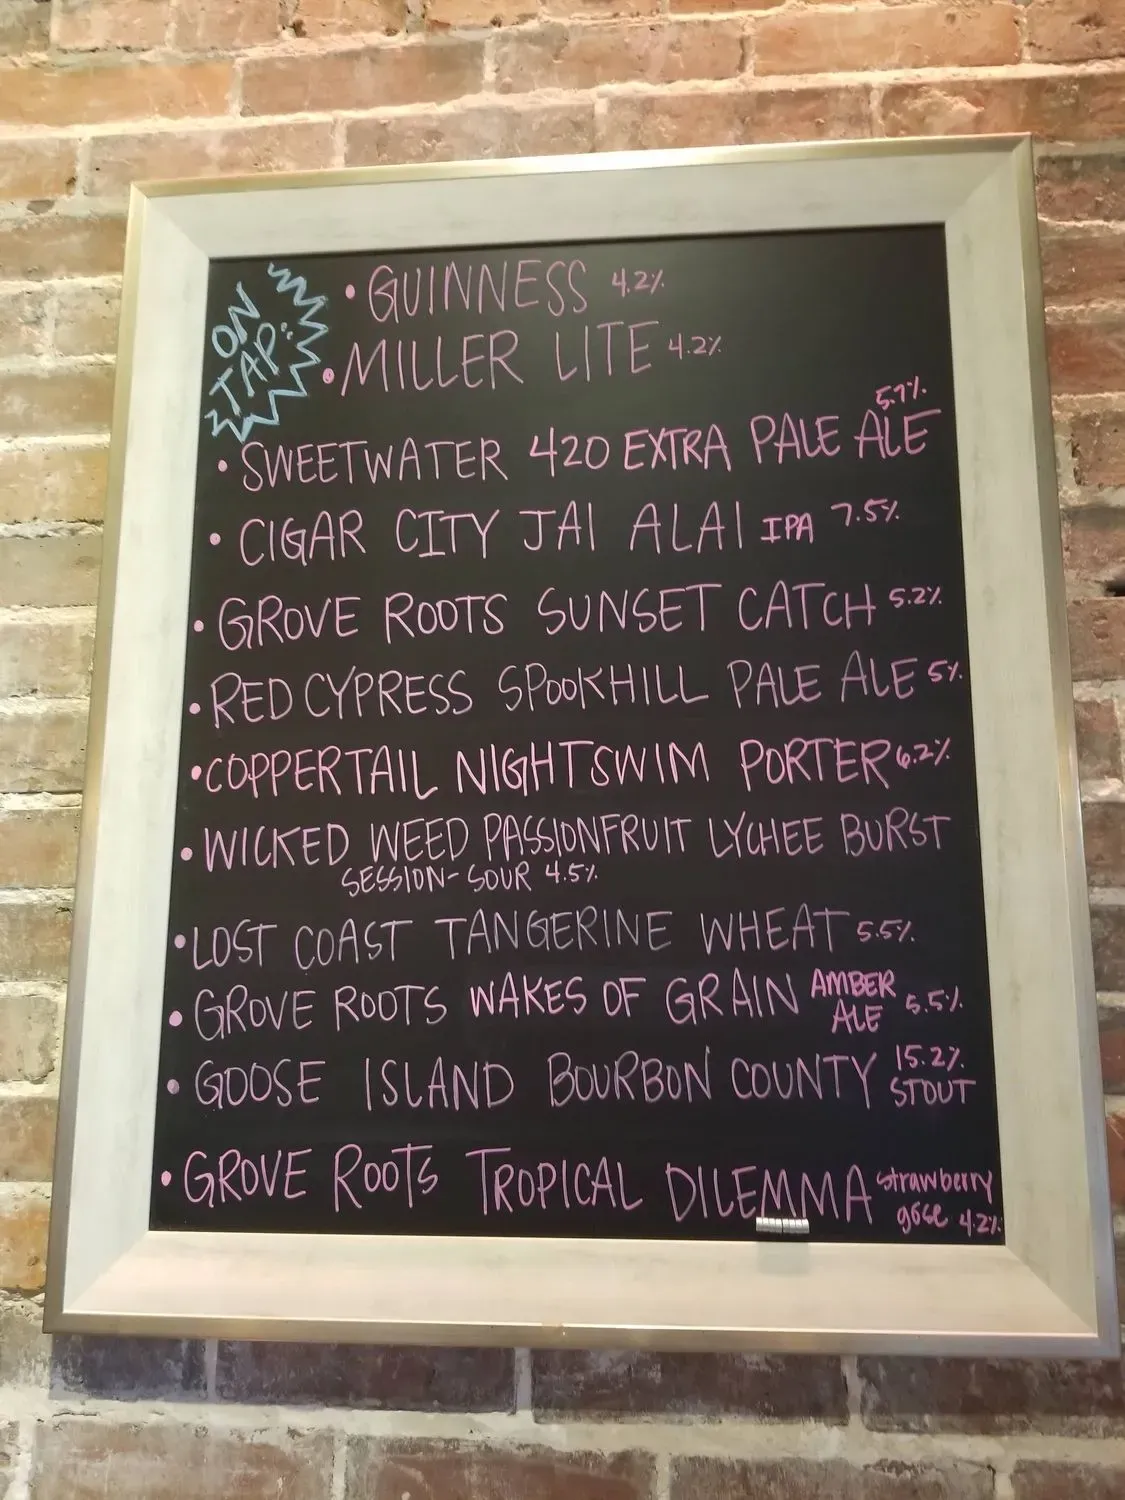 ON TAP:
• GUINNESS 4.2%
• MILLER LITE 4.2%
• SWEETWATER 420 EXTRA PALE ALE 5.7%
• CIGAR CITY JAI ALAI IPA 7.5%
• GROVE ROOTS SUNSET CATCH 5.2%
• RED CYPRESS SPOOKHILL PALE ALE 5%
• COPPERTAIL NIGHTSWIM PORTER 6.2%
• WICKED WEED PASSIONFRUIT LYCHEE BURST
SESSION-SOUR 4.5%
• LOST COAST TANGERINE WHEAT 5.5%
• GROVE ROOTS WAKES OF GRAIN AMBER ALE 5.5%
• GOOSE ISLAND BOURBON COUNTY 15.2% STOUT
• GROVE ROOTS TROPICAL DILEMMA strawberry gose 4.2%